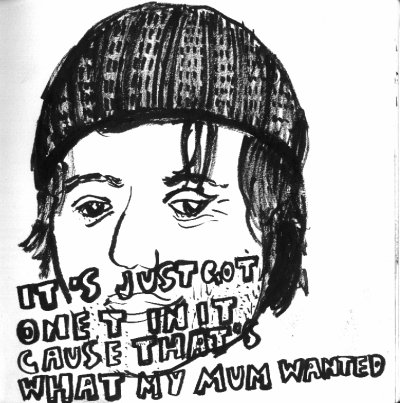 IT'S JUST GOT
ONE T IN IT
CAUSE THAT'S
WHAT MY MUM WANTED